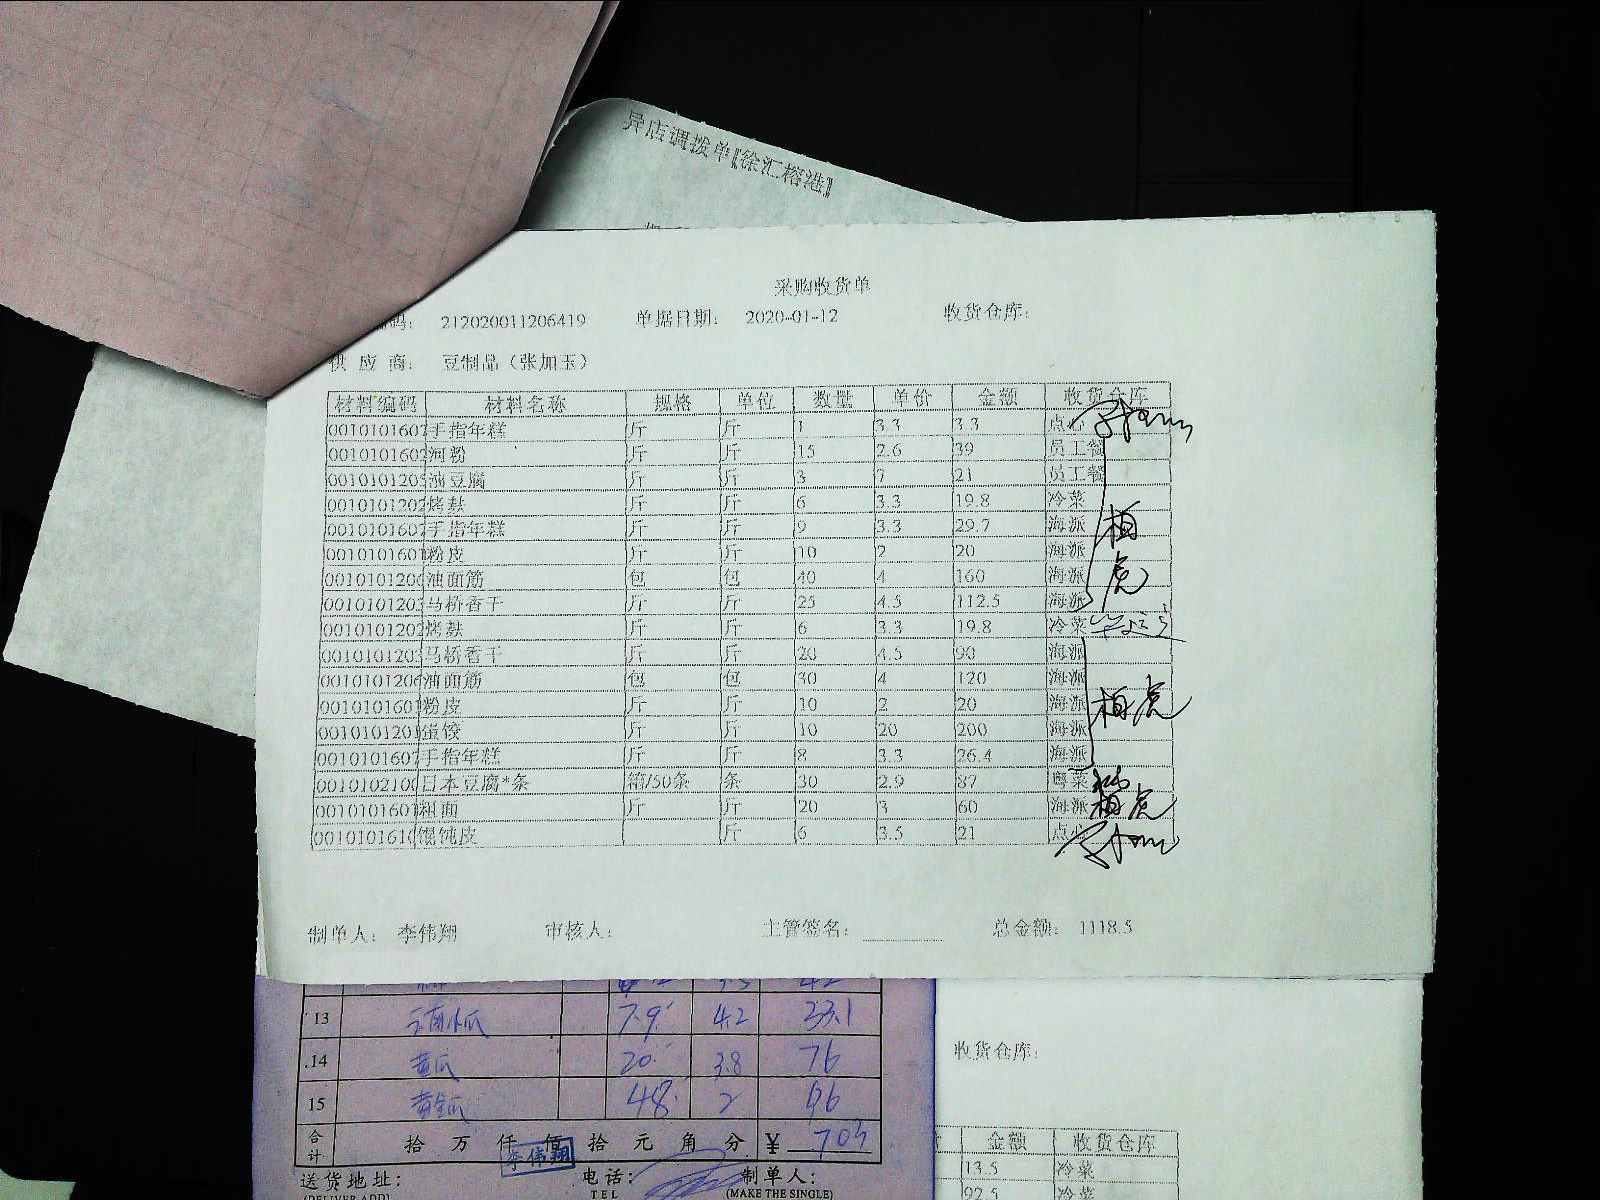 异店调拨单【徐汇榕港】
采购收货单
编码： 212020011206419 单据日期： 2020-01-12 收货仓库：
供 应 商： 豆制品（张加玉）
材料编码 材料名称 规格 单位 数量 单价 金额 收货仓库
0010101607 手指年糕 斤 斤 1 3.3 3.3 点心
0010101602 河粉 斤 斤 15 2.6 39 员工餐
0010101205 油豆腐 斤 斤 3 7 21 员工餐
0010101202 烤麸 斤 斤 6 3.3 19.8 冷菜
0010101607 手指年糕 斤 斤 9 3.3 29.7 海派
0010101601 粉皮 斤 斤 10 2 20 海派
0010101206 油面筋 包 包 40 4 160 海派
0010101203 马桥香干 斤 斤 25 4.5 112.5 海派
0010101202 烤麸 斤 斤 6 3.3 19.8 冷菜
0010101203 马桥香干 斤 斤 20 4.5 90 海派
0010101206 油面筋 包 包 30 4 120 海派
0010101601 粉皮 斤 斤 10 2 20 海派
0010101201 蛋饺 斤 斤 10 20 200 海派
0010101607 手指年糕 斤 斤 8 3.3 26.4 海派
0010102100 日本豆腐*条 箱/50条 条 30 2.9 87 粤菜
0010101601 粗面 斤 斤 20 3 60 海派
0010101610 馄饨皮 斤 6 3.5 21 点心
柏虎
柏虎
柏虎
制单人： 李伟翔 审核人： 主管签名： 总金额： 1118.5
13 7.9 4.2 33.1
14 黄瓜 20 3.8 76
15 黄金瓜 48 2 96
合计 拾 万 仟 佰 拾 元 角 分 ¥ 703
李伟翔
送货地址： 电话： 制单人：
(DELIVER ADD) TEL (MAKE THE SINGLE)
收货仓库：
金额 收货仓库
13.5 冷菜
92.5 冷菜